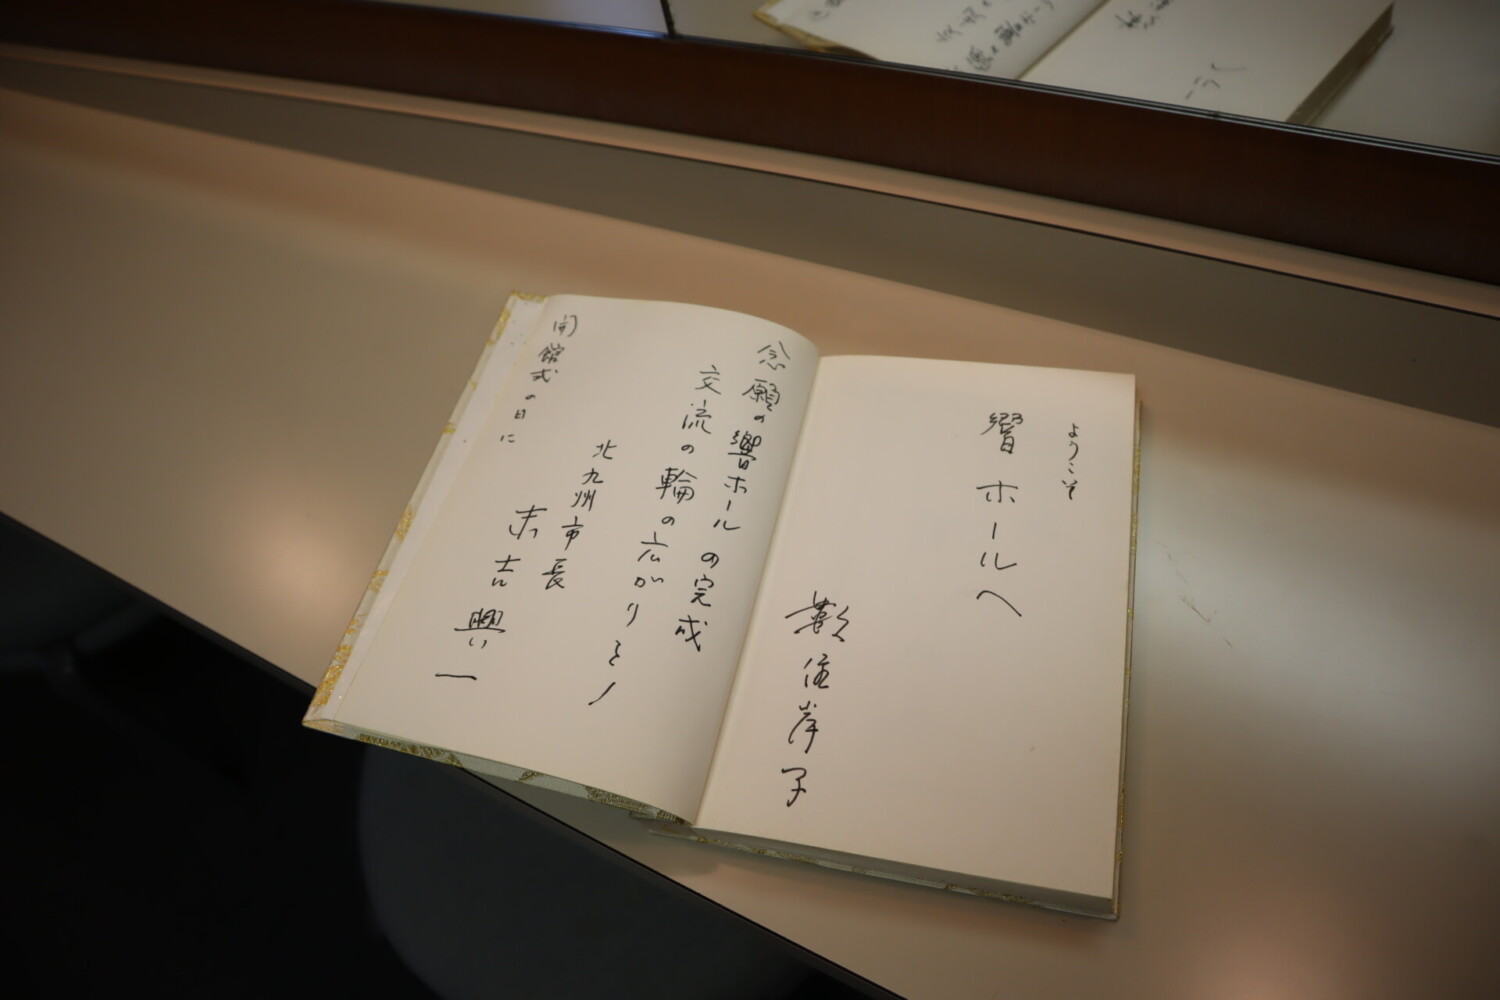 ようこそ
響ホールへ
数住岸子
念願の響ホールの完成
交流の輪の広がりを!
北九州市長
末吉興一
開館式の日に